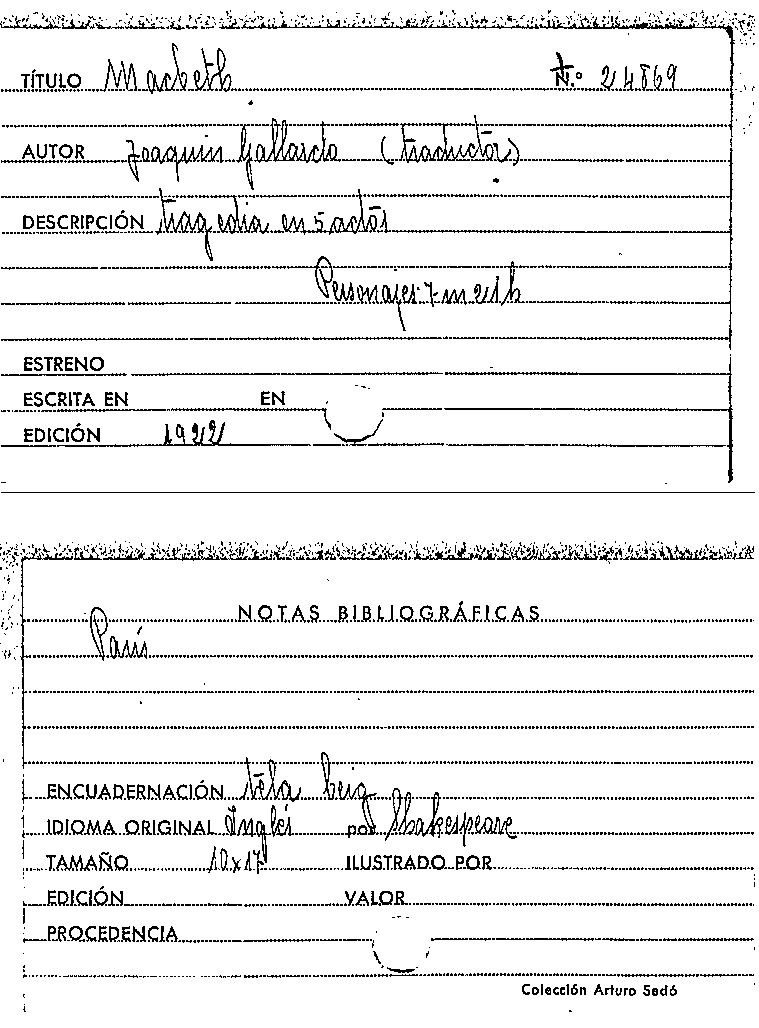 TÍTULO Macbeth N.º 24869
AUTOR Joaquin Gallardo (traductor)
DESCRIPCIÓN tragedia en 5 actos
Personajes 7 m 21 h
ESTRENO
ESCRITA EN EN
EDICIÓN 1922
NOTAS BIBLIOGRÁFICAS
París
ENCUADERNACIÓN tela beig
IDIOMA ORIGINAL Inglés por Shakespeare
TAMAÑO 10x17 ILUSTRADO POR
EDICIÓN VALOR
PROCEDENCIA
Colección Arturo Sedó